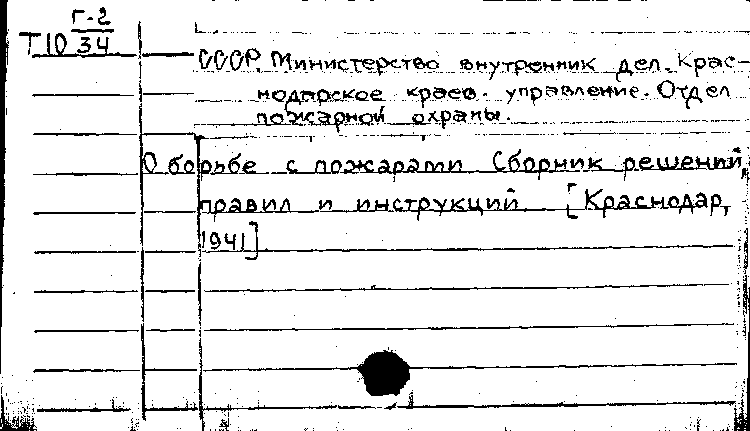 Г-2
Т10 34
СССР. Министерство внутренних дел. Крас-
нодарское краев. управление. Отдел
пожарной охраны.
О борьбе с пожарами Сборник решений,
правил и инструкций. [Краснодар,
1941]